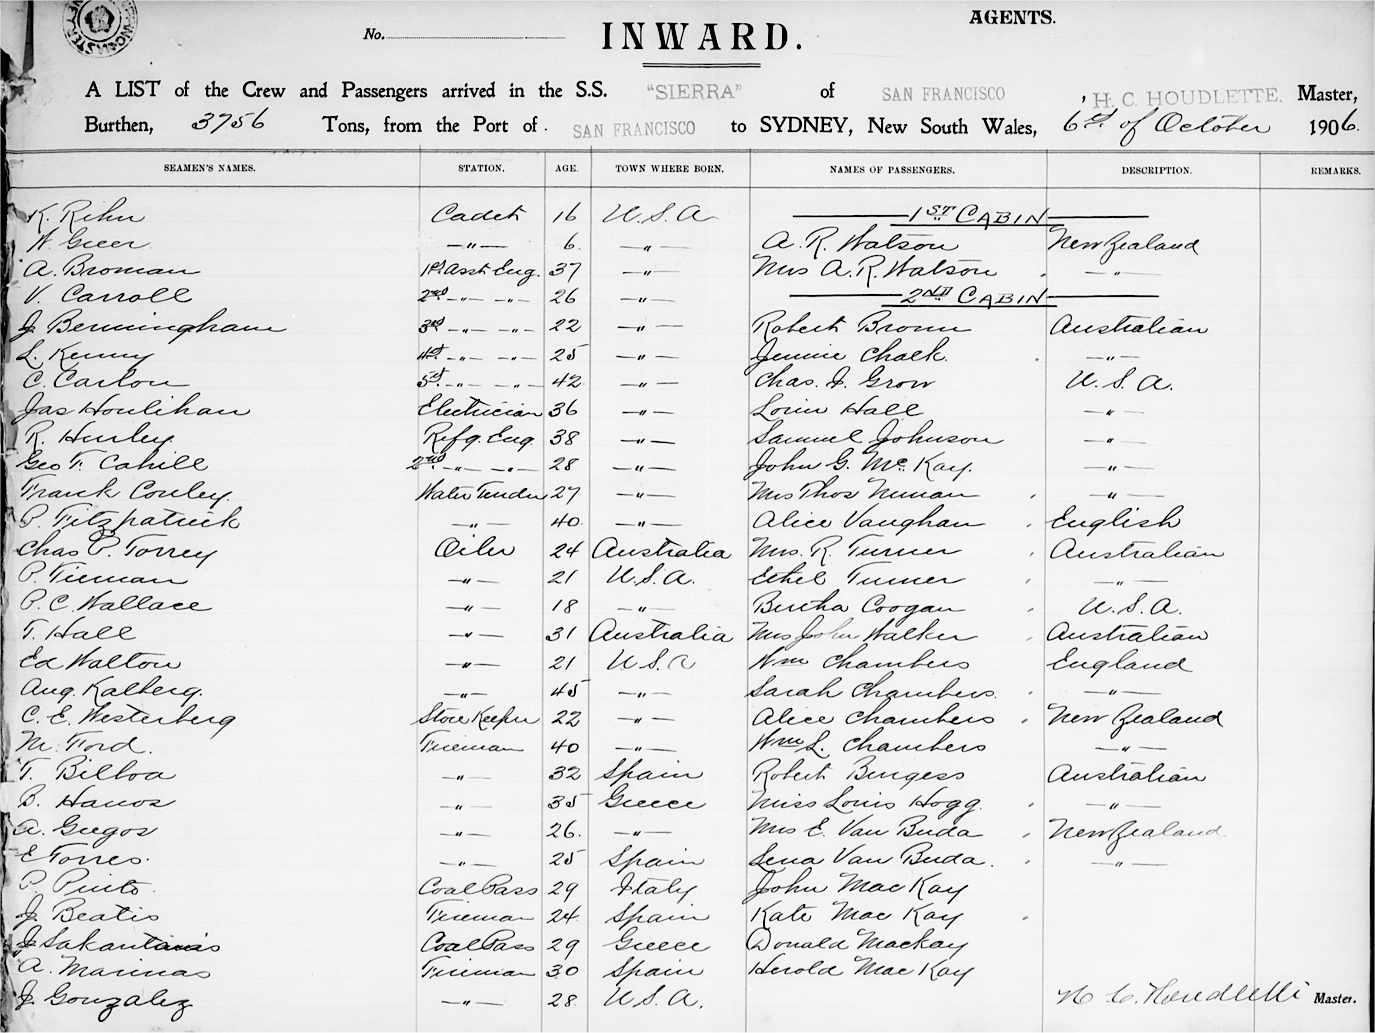 AGENTS.
No. INWARD.
A LIST of the Crew and Passengers arrived in the S.S. "SIERRA" of SAN FRANCISCO, H. C. HOUDLETTE. Master,
Burthen, 3756 Tons, from the Port of SAN FRANCISCO to SYDNEY, New South Wales, 6th of October 1906.
SEAMEN'S NAMES. STATION. AGE. TOWN WHERE BORN. NAMES OF PASSENGERS. DESCRIPTION. REMARKS.
K. Rihn Cadet 16 U.S.A 1ST CABIN
W. Greer —"— 6 —"— A. R. Watson New Zealand
A. Broman 1st Asst Eng. 37 —"— Mrs A. R. Watson —"—
V. Carroll 2nd —"— —"— 26 —"— 2ND CABIN
J. Bermingham 3rd —"— —"— 22 —"— Robert Brown Australian
L. Kenny 4th —"— —"— 25 —"— Jennie Chalk. —"—
C. Carlon 5th —"— —"— 42 —"— Chas. J. Grow U.S.A.
Jas Houlihan Electrician 36 —"— Hall —"—
R. Hurley Refg. Eng. 38 —"— Samuel Johnson —"—
Geo F. Cahill 2nd —"— —"— 28 —"— John G. McKay. —"—
Frank Conley. Water Tender 27 —"— Mrs Thos —"—
P. Fitzpatrick —"— 40 —"— Alice Vaughan English
Chas P. Torrey Oiler 24 Australia Mrs. R. Turner Australian
P. Tieman —"— 21 U.S.A. Ethel Turner —"—
P. C. Wallace —"— 18 —"— Bertha Coogan U.S.A.
T. Hall —"— 31 Australia Mrs John Walker Australian
Ed Walton —"— 21 U.S.A Wm Chambers England
Aug. Kalberg. —"— 45 —"— Sarah Chambers. —"—
C. E. Westerberg Store Keeper 22 —"— Alice Chambers New Zealand
M. Ford. Fireman 40 —"— Wm L. Chambers —"—
T. Bilboa —"— 32 Spain Robert Burgess Australian
B. Hanos —"— 35 Greece Miss Louis Hogg. —"—
A. Gregos —"— 26. —"— Mrs E. Van Buda New Zealand
E Torres. —"— 25 Spain Lena Van Buda. —"—
P. Pinto. Coal Pass 29 Italy John MacKay
J. Beatis Fireman 24 Spain Kate MacKay
J. Coal Pass 29 Greece Donald Mackay
A. Marinas Fireman 30 Spain Herold MacKay
J. Gonzalez —"— 28 U.S.A. H. C. Houdlette Master.